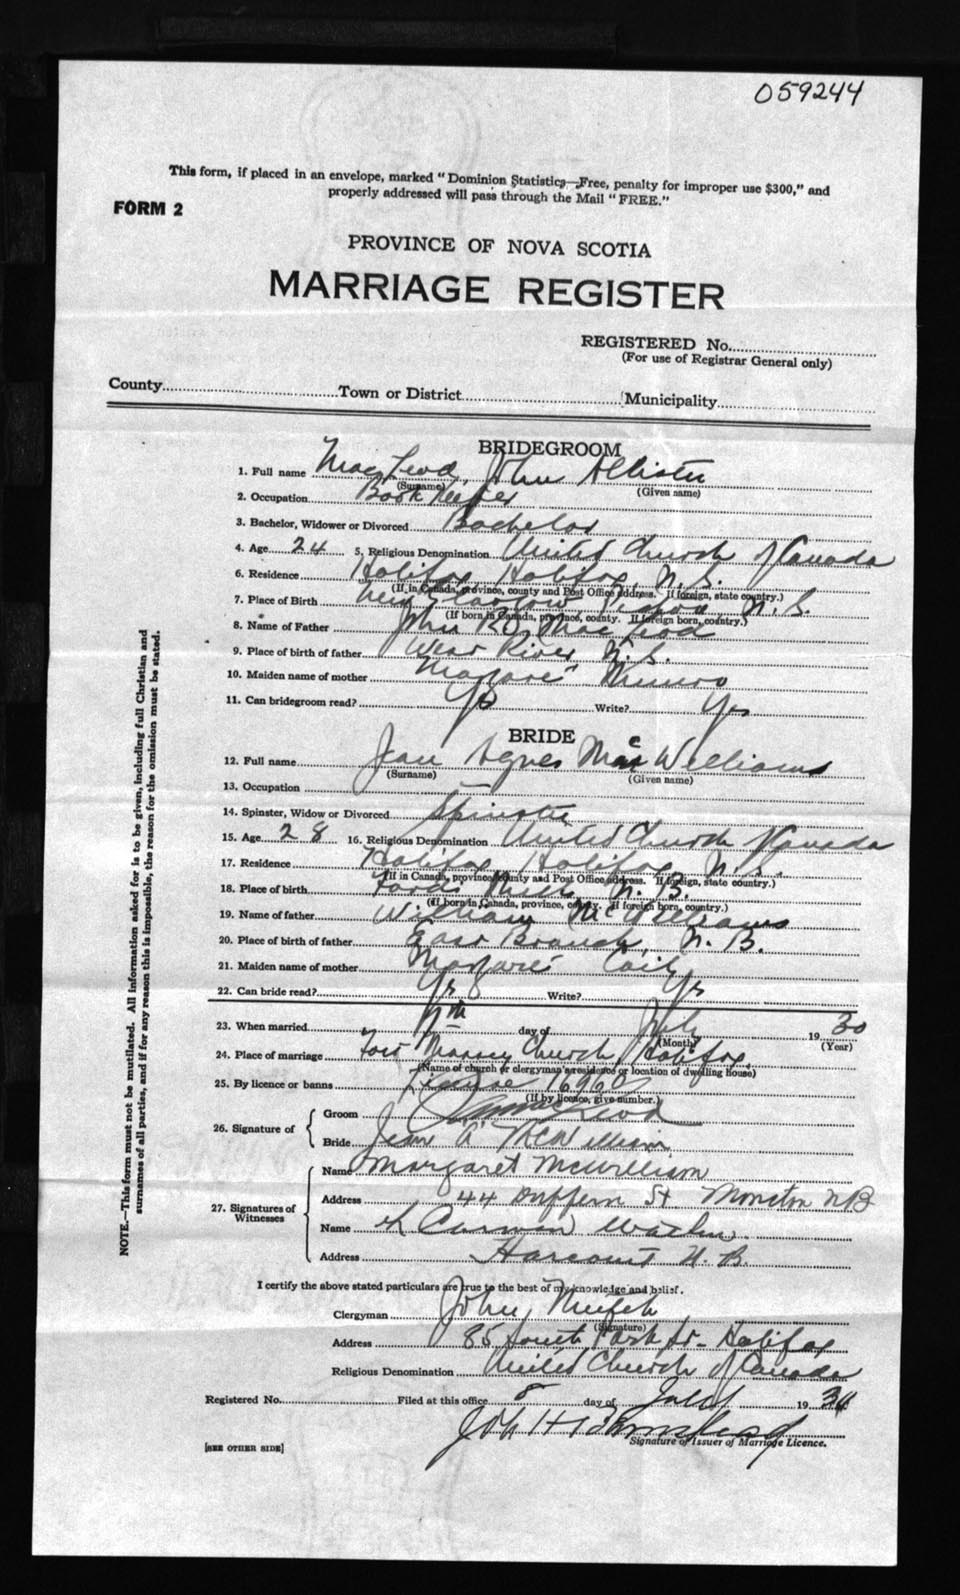 059244
This form, if placed in an envelope, marked "Dominion Statistics—Free, penalty for improper use $300," and
properly addressed will pass through the Mail "FREE."
FORM 2
PROVINCE OF NOVA SCOTIA
MARRIAGE REGISTER
REGISTERED No.
(For use of Registrar General only)
County Town or District Municipality
BRIDEGROOM
1. Full name MacLeod, John Allister
(Surname) (Given name)
2. Occupation Book Keeper
3. Bachelor, Widower or Divorced Bachelor
4. Age 24 5. Religious Denomination United Church of Canada
6. Residence Halifax, Halifax, N.S.
(If in Canada, province, county and Post Office address. If foreign, state country.)
7. Place of Birth New Glasgow, Pictou, N.S.
(If born in Canada, province, county. If foreign born, country.)
8. Name of Father John MacLeod
9. Place of birth of father West River N.S.
10. Maiden name of mother Margaret Munro
11. Can bridegroom read? Yes Write? Yes
BRIDE
12. Full name Jean Agnes MacWilliams
(Surname) (Given name)
13. Occupation —
14. Spinster, Widow or Divorced Spinster
15. Age 28 16. Religious Denomination United Church of Canada
17. Residence Halifax, Halifax, N.S.
(If in Canada, province, county and Post Office address. If foreign, state country.)
18. Place of birth Fords Mills N.B.
(If born in Canada, province, county. If foreign born, country.)
19. Name of father William McWilliams
20. Place of birth of father East Branch, N.B.
21. Maiden name of mother Margaret Cail
22. Can bride read? Yes Write? Yes
23. When married day of July 1930
(Month) (Year)
24. Place of marriage Fort Massey Church, Halifax,
(Name of church or clergyman's residence or location of dwelling house)
25. By licence or banns License 16960
(If by licence, give number.)
26. Signature of
Groom MacLeod
Bride Jean A. McWilliam
27. Signatures of Witnesses
Name Margaret McWilliam
Address 44 Dufferin St Moncton NB
Name Carman
Address Harcourt N.B.
I certify the above stated particulars are true to the best of my knowledge and belief.
Clergyman John
(Signature)
Address 85 South Park St. Halifax
Religious Denomination United Church of Canada
Registered No. Filed at this office 8 day of July 19
Signature of Issuer of Marriage Licence.
[SEE OTHER SIDE]
NOTE.—This form must not be mutilated. All information asked for is to be given, including full Christian and
surnames of all parties, and if for any reason this is impossible, the reason for the omission must be stated.